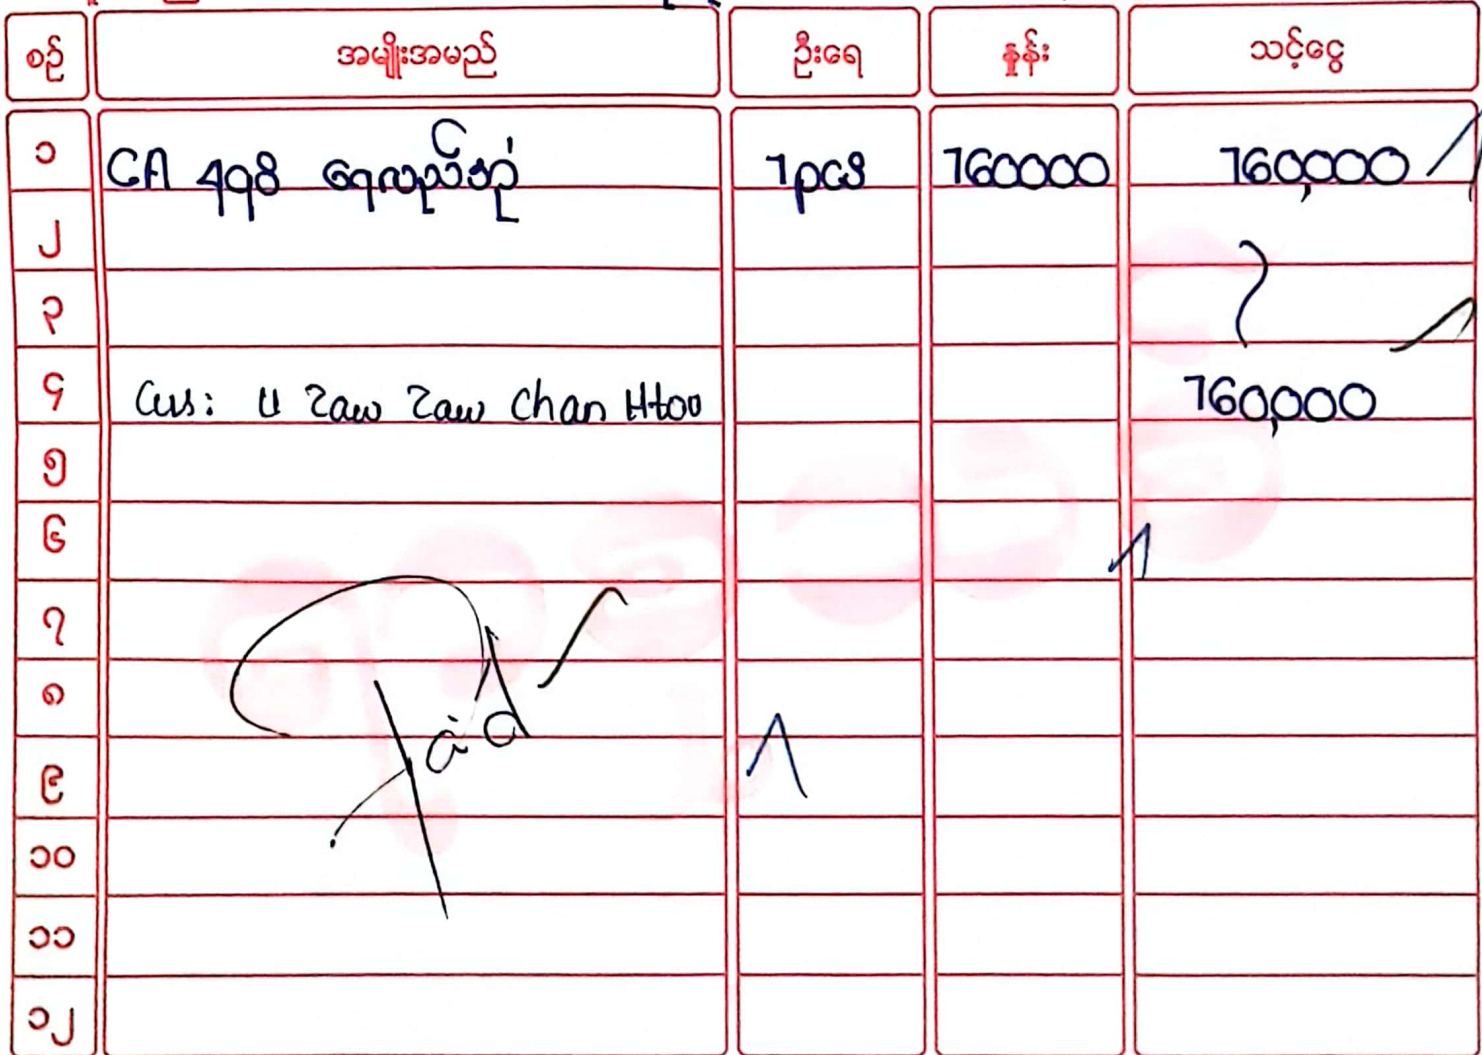 စဉ် အမျိုးအမည် ဦးရေ နှုန်း သင့်ငွေ
၁ CA 498 ရေလည်ဘုံ 1pcs 160000 160,000
၂
၃
၄ Cus: U Zaw Zaw Chan Htoo 160,000
၅
၆
၇
၈ Paid
၉
၁၀
၁၁
၁၂